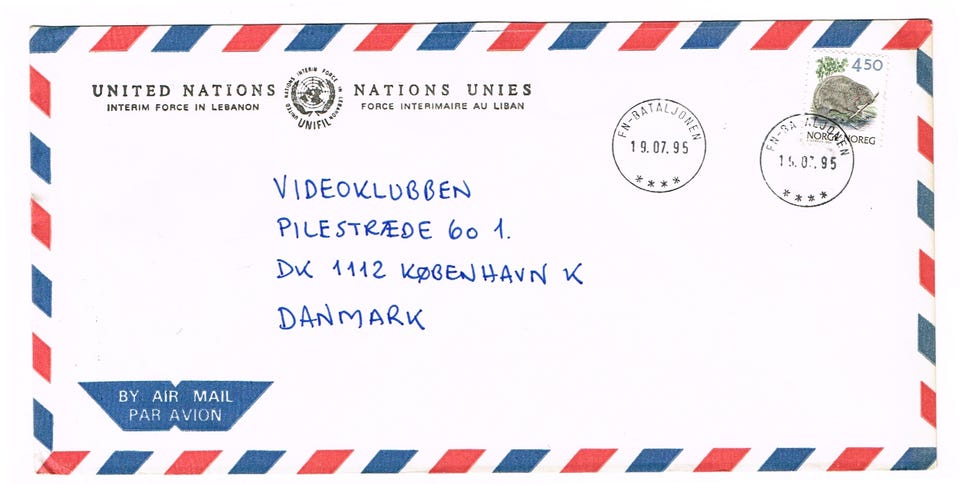 UNITED NATIONS NATIONS UNIES
INTERIM FORCE IN LEBANON FORCE INTERIMAIRE AU LIBAN
UNITED NATIONS INTERIM FORCE IN LEBANON
UNIFIL
FN-BATALJONEN
19.07.95
****
450
NORGE NOREG
FN-BATALJONEN
19.07.95
****
VIDEOKLUBBEN
PILESTRÆDE 60 1.
DK 1112 KØBENHAVN K
DANMARK
BY AIR MAIL
PAR AVION